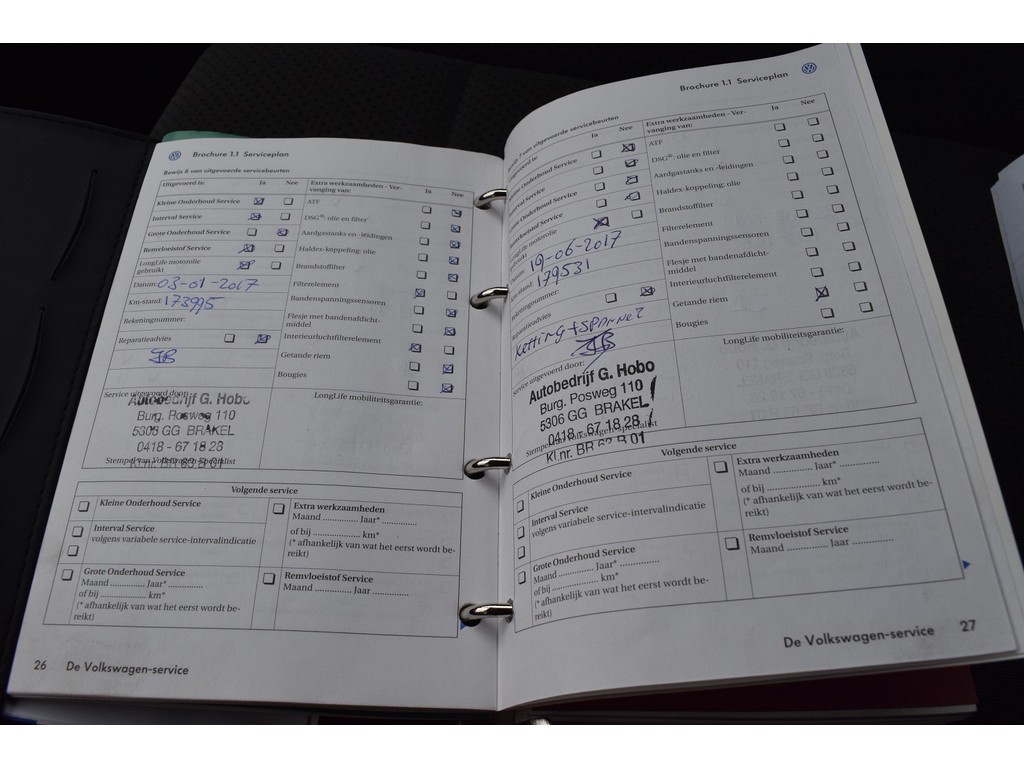 Brochure 1.1 Serviceplan
Bewijs 6 van uitgevoerde servicebeurten
Uitgevoerd is: Ja Nee
Kleine Onderhoud Service
Interval Service
Grote Onderhoud Service
Remvloeistof Service
LongLife motorolie
gebruikt
Datum: 03-01-2017
Km-stand: 173995
Rekeningnummer:
Reparatieadvies
Service uitgevoerd door:
Autobedrijf G. Hobo
Burg. Posweg 110
5306 GG BRAKEL
0418 - 67 18 28
Kl.nr. BR 63 B 01
Stempel van Volkswagen-specialist
Extra werkzaamheden - Ver-
vanging van: Ja Nee
ATF
DSG®: olie en filter
Aardgastanks en -leidingen
Haldex-koppeling: olie
Brandstoffilter
Filterelement
Bandenspanningssensoren
Flesje met bandenafdicht-
middel
Interieurluchtfilterelement
Getande riem
Bougies
LongLife mobiliteitsgarantie:
Volgende service
Kleine Onderhoud Service
Interval Service
volgens variabele service-intervalindicatie
Grote Onderhoud Service
Maand .............. Jaar* ..............
of bij .................... km*
(* afhankelijk van wat het eerst wordt be-
reikt)
Extra werkzaamheden
Maand .............. Jaar* ..............
of bij .................... km*
(* afhankelijk van wat het eerst wordt be-
reikt)
Remvloeistof Service
Maand .............. Jaar ..............
26 De Volkswagen-service
Brochure 1.1 Serviceplan
7 van uitgevoerde servicebeurten
Ja Nee
Onderhoud Service
Interval Service
Onderhoud Service
Service
LongLife motorolie
19-06-2017
Km-stand: 179531
Reparatieadvies
Ketting + spanner
Service uitgevoerd door:
Autobedrijf G. Hobo
Burg. Posweg 110
5306 GG BRAKEL
0418 - 67 18 28
Kl.nr. BR 63 B 01
Stempel van Volkswagen-specialist
Extra werkzaamheden - Ver-
vanging van: Ja Nee
ATF
DSG®: olie en filter
Aardgastanks en -leidingen
Haldex-koppeling: olie
Brandstoffilter
Filterelement
Bandenspanningssensoren
Flesje met bandenafdicht-
middel
Interieurluchtfilterelement
Getande riem
Bougies
LongLife mobiliteitsgarantie:
Volgende service
Kleine Onderhoud Service
Interval Service
volgens variabele service-intervalindicatie
Grote Onderhoud Service
Maand .............. Jaar* ..............
of bij .................... km*
(* afhankelijk van wat het eerst wordt be-
reikt)
Extra werkzaamheden
Maand .............. Jaar* ..............
of bij .................... km*
(* afhankelijk van wat het eerst wordt be-
reikt)
Remvloeistof Service
Maand .............. Jaar ..............
De Volkswagen-service 27